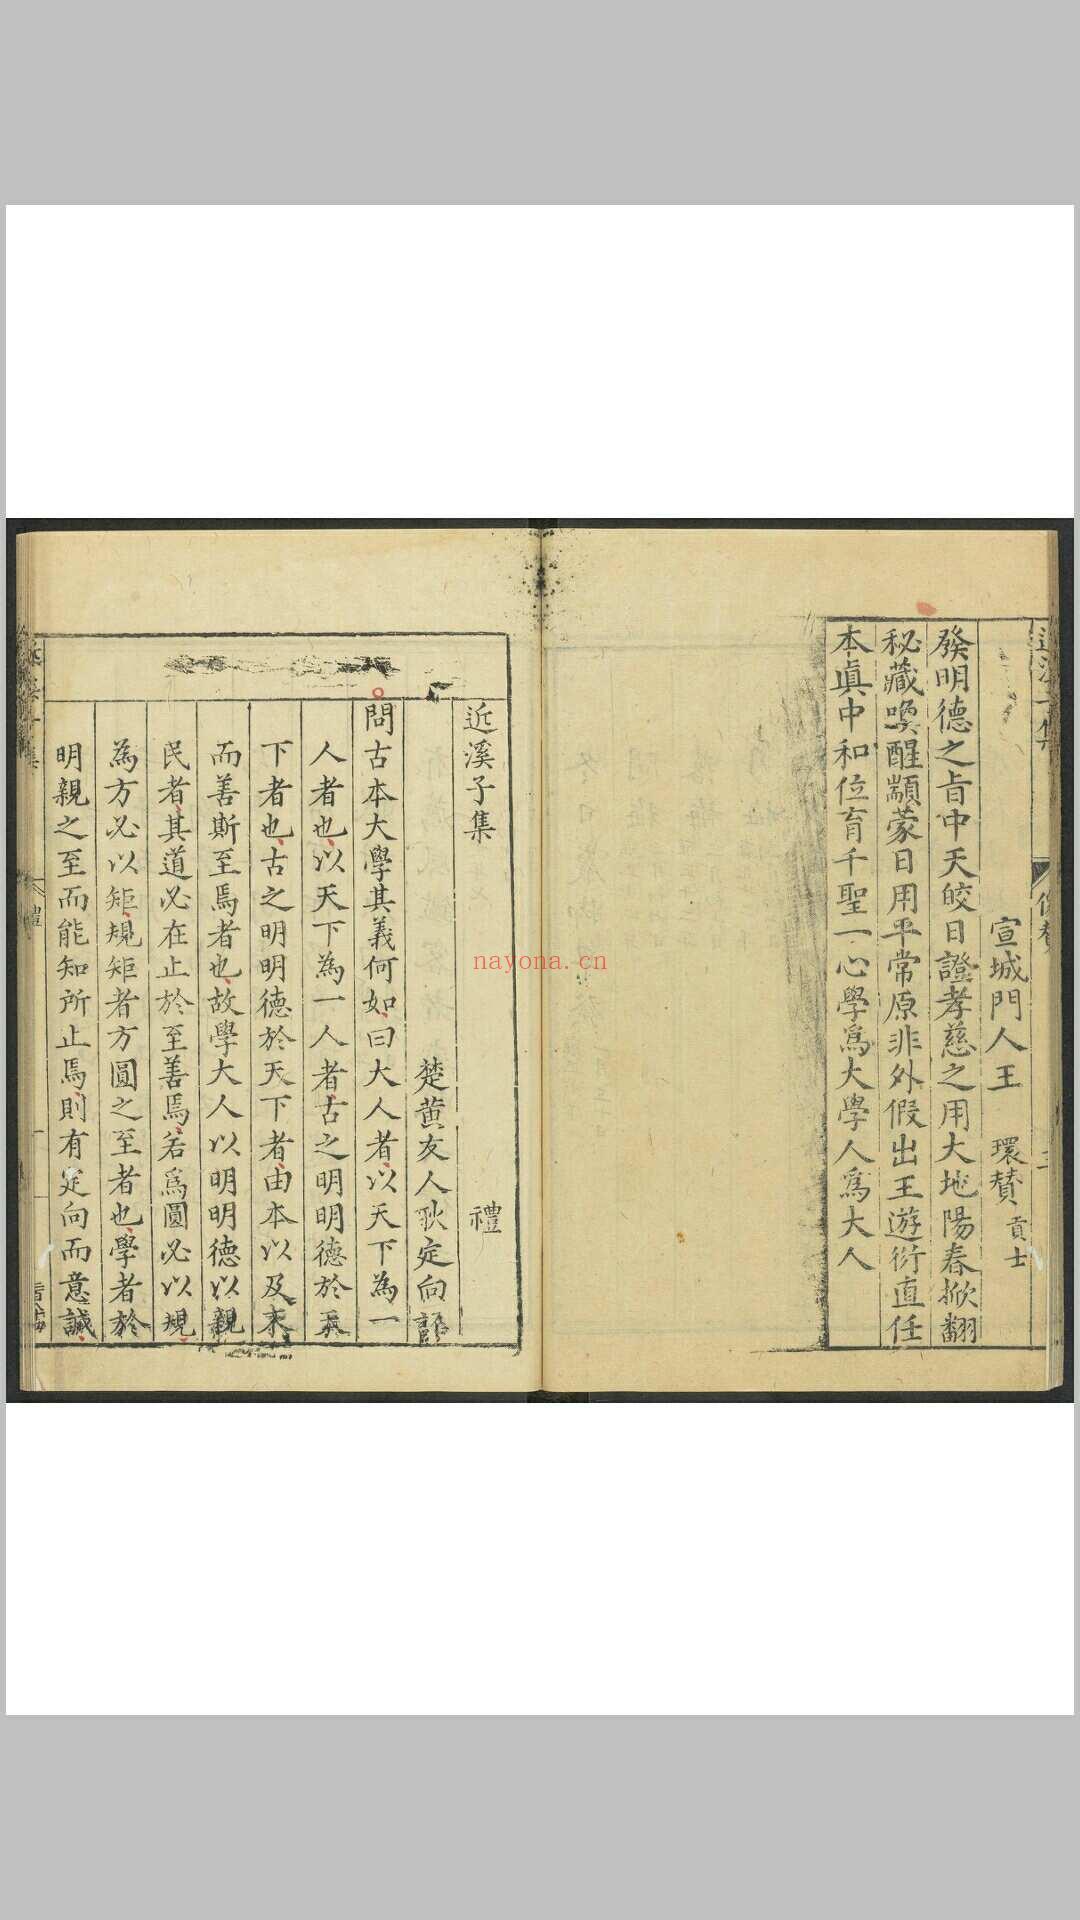 宣城門人王　環贊貢士
發明德之旨中天皎日證孝慈之用大地陽春掀翻
秘藏喚醒顓蒙日用平常原非外假出王遊衍直任
本眞中和位育千聖一心學爲大學人爲大人
近溪子集　禮
楚黄友人耿定向
問古本大學其義何如曰大人者以天下為一
人者也以天下為一人者古之明明德於天
下者也古之明明德於天下者由本以及末
而善斯至焉者也故學大人以明明德以親
民者其道必在止於至善焉若爲圓必以規
為方必以矩規矩者方圓之至者也學者於
明親之至而能知所止焉則有定向而意誠
禮
nayona.cn